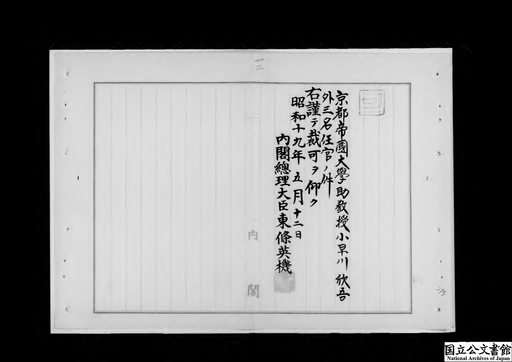 京都帝國大學助教授小早川欣吾
外三名任官ノ件
右謹テ裁可ヲ仰ク
昭和十九年五月十二日
内閣總理大臣東條英機
内閣
国立公文書館
National Archives of Japan